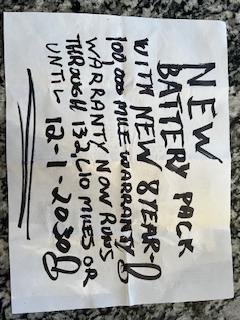 NEW
BATTERY PACK
WITH NEW 8 YEAR-
100,000 MILE WARRANTY
WARRANTY NOW RUNS
THROUGH 132,610 MILES OR
UNTIL 12-1-2030